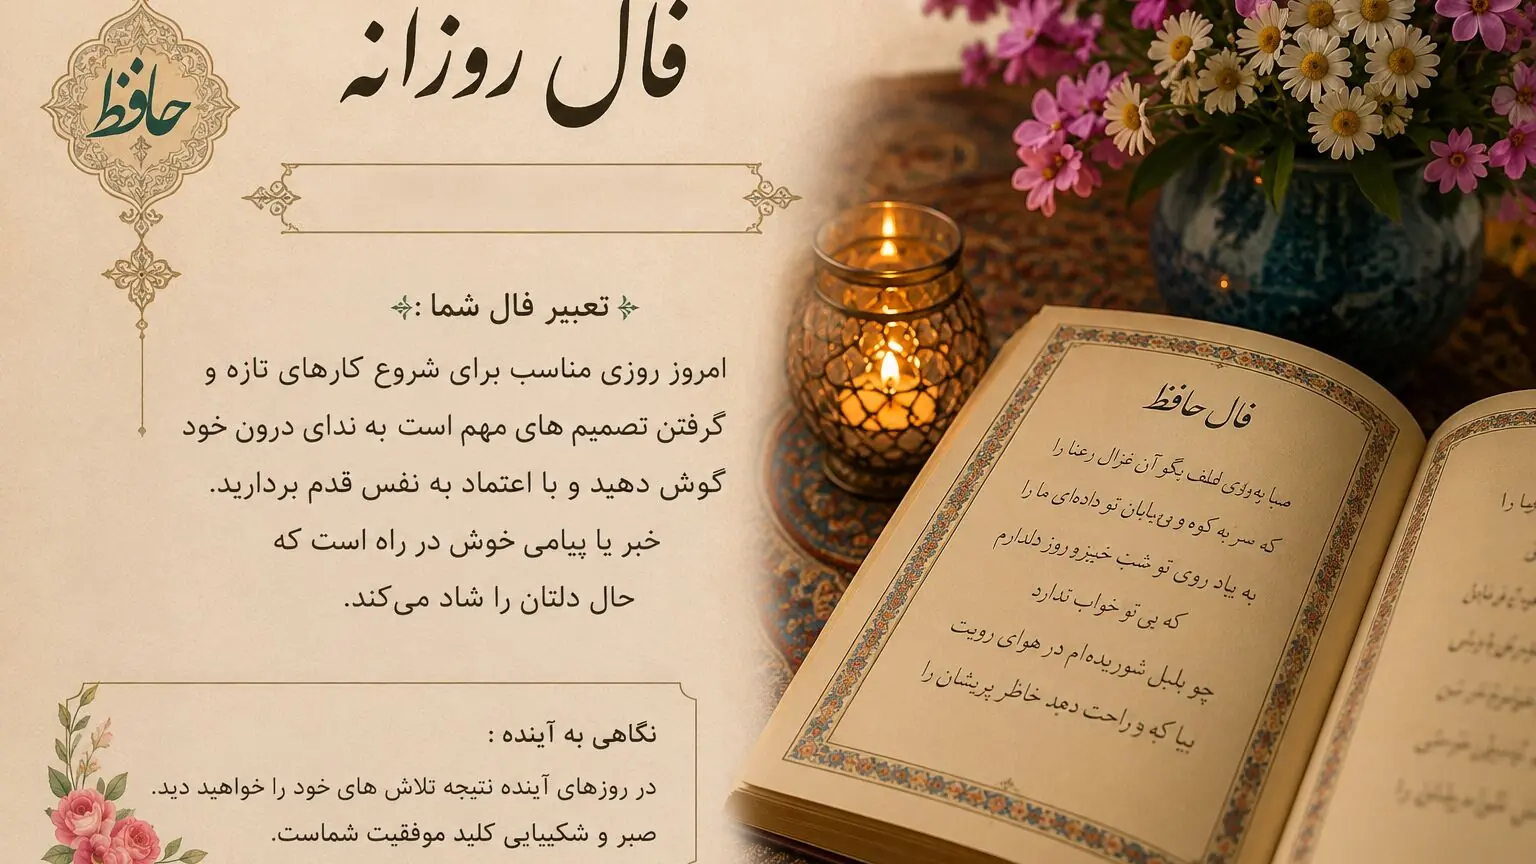 فال روزانه
حافظ
تعبیر فال شما :
امروز روزی مناسب برای شروع کارهای تازه و
گرفتن تصمیم های مهم است به ندای درون خود
گوش دهید و با اعتماد به نفس قدم بردارید.
خبر یا پیامی خوش در راه است که
حال دلتان را شاد می‌کند.
نگاهی به آینده :
در روزهای آینده نتیجه تلاش های خود را خواهید دید.
صبر و شکیبایی کلید موفقیت شماست.
فال حافظ
بگو آن غزال رعنا را
که سر به کوه و بیابان تو داده‌ای ما را
به یاد روی تو شب خیز و روز دلدارم
که بی تو خواب ندارد
چو بلبل شوریده‌ام در هوای رویت
بیا که راحت دهد خاطر پریشان را